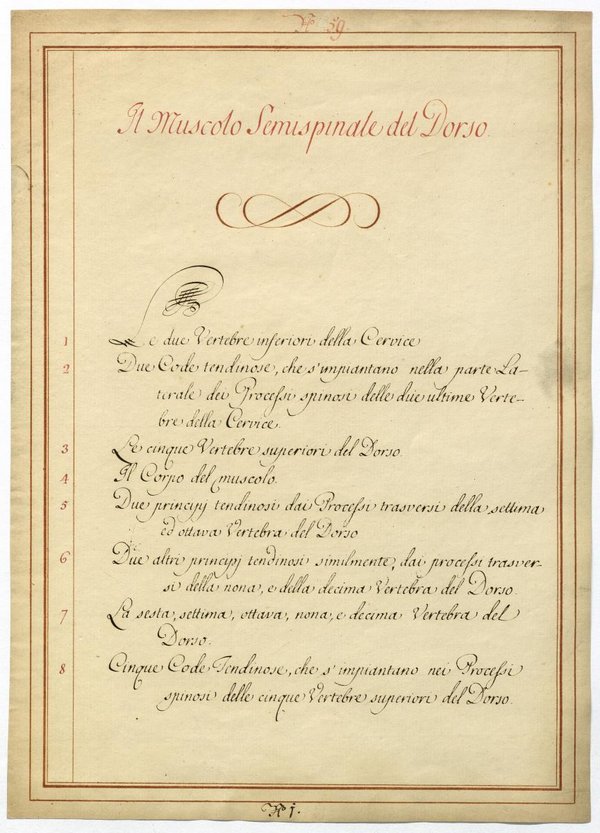 N. 59.
Il Muscolo Semispinale del Dorso.
1 Le due Vertebre inferiori della Cervice
2 Due Code tendinose, che s'impiantano nella parte La-
terale dei Processi spinosi delle due ultime Verte-
bre della Cervice.
3 Le cinque Vertebre superiori del Dorso.
4 Il Corpo del muscolo.
5 Due principj tendinosi dai Processi trasversi della settima
ed ottava Vertebra del Dorso
6 Due altri principj tendinosi similmente, dai processi trasver-
si della nona, e della decima Vertebra del Dorso.
7 La sesta, settima, ottava, nona, e decima Vertebra del
Dorso.
8 Cinque Code Tendinose, che s'impiantano nei Processi
spinosi delle cinque Vertebre superiori del Dorso.
N. 1.